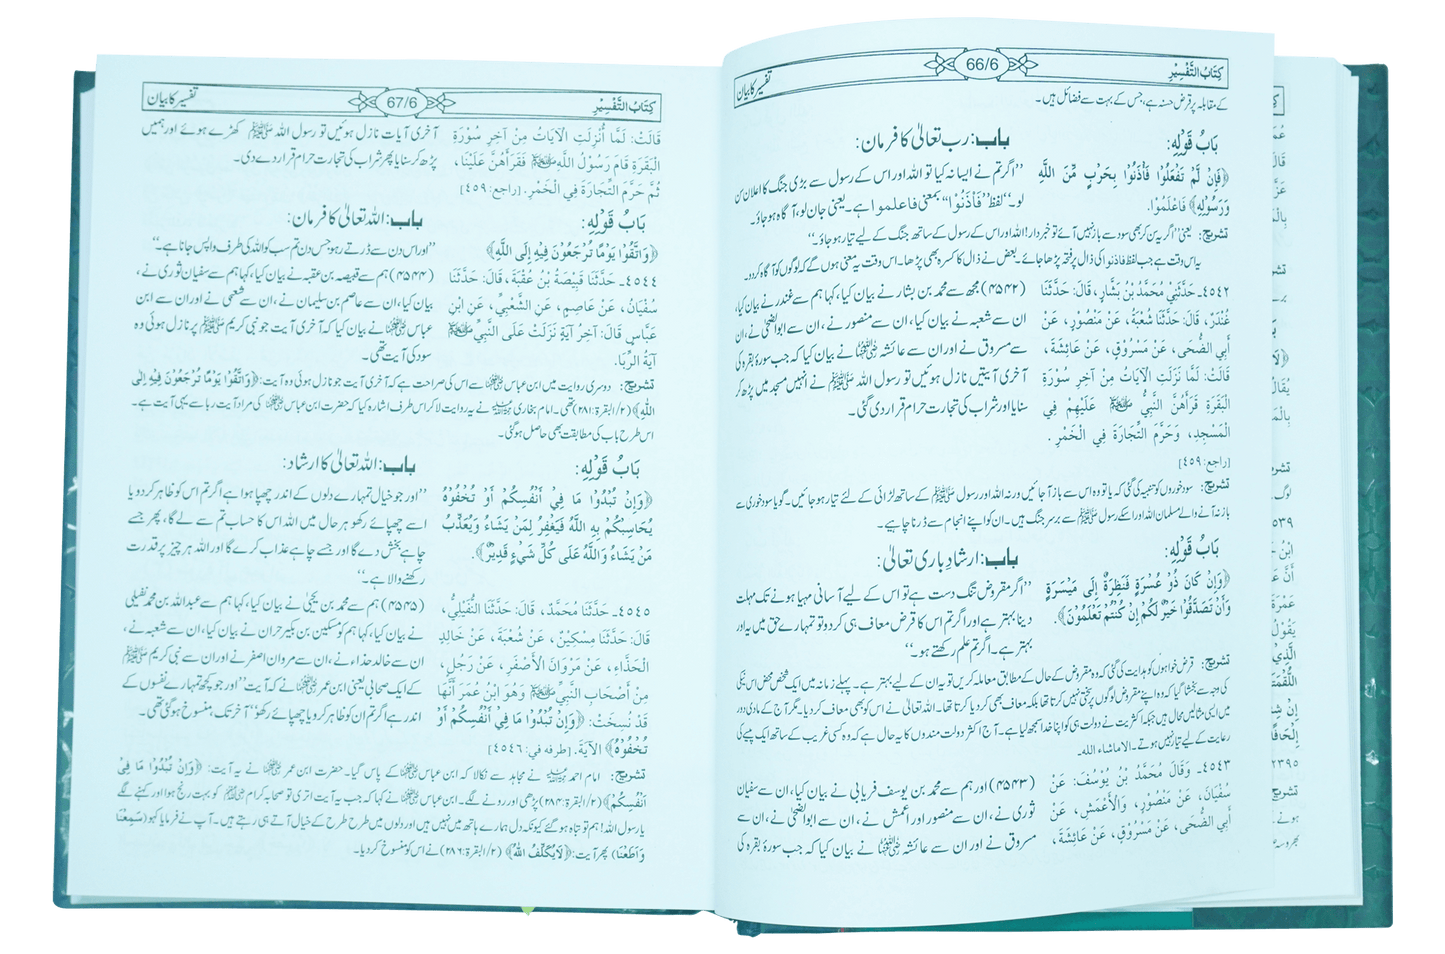 کِتَابُ التَّفْسِيْرِ
66/6
تفسیر کا بیان
کے مقابلہ پر قرض حسنہ ہے، جس کے بہت سے فضائل ہیں۔
بَابُ قَوْلِهِ:
﴿فَإِنْ لَّمْ تَفْعَلُوْا فَأْذَنُوْا بِحَرْبٍ مِّنَ اللَّهِ
وَرَسُوْلِهِ﴾ فَاعْلَمُوْا.
باب: رب تعالیٰ کا فرمان:
’’اگر تم نے ایسا نہ کیا تو اللہ اور اس کے رسول سے بڑی جنگ کا اعلان سن
لو۔‘‘ لفظ ’’فَأْذَنُوْا‘‘ بمعنی فاعلموا ہے۔ یعنی جان لو، آگاہ ہو جاؤ۔
تشریح: یعنی ’’اگر یہ سن کر بھی سود سے باز نہیں آئے تو خبردار! اللہ اور اس کے رسول کے ساتھ جنگ کے لیے تیار ہو جاؤ۔‘‘
یہ اس وقت ہے جب لفظ فاذنوا کی ذال پر فتحہ پڑھا جائے۔ بعض نے ذال کا کسرہ بھی پڑھا۔ اس وقت یہ معنی ہوں گے کہ لوگوں کو آگاہ کر دو۔
٤٥٤٢۔ حَدَّثَنِيْ مُحَمَّدُ بْنُ بَشَّارٍ، قَالَ: حَدَّثَنَا
غُنْدَرٌ، قَالَ: حَدَّثَنَا شُعْبَةُ، عَنْ مَنْصُوْرٍ، عَنْ
أَبِي الضُّحَى، عَنْ مَسْرُوْقٍ، عَنْ عَائِشَةَ،
قَالَتْ: لَمَّا نَزَلَتِ الْآيَاتُ مِنْ آخِرِ سُوْرَةِ
الْبَقَرَةِ قَرَأَهُنَّ النَّبِيُّ ﷺ عَلَيْهِمْ فِي
الْمَسْجِدِ، وَحَرَّمَ التِّجَارَةَ فِي الْخَمْرِ .
[راجع: ٤٥٩]
(۴۵۴۲) مجھ سے محمد بن بشار نے بیان کیا، کہا ہم سے غندر نے بیان کیا،
ان سے شعبہ نے بیان کیا، ان سے منصور نے، ان سے ابوالضحیٰ نے، ان
سے مسروق نے اور ان سے عائشہ ؓ نے بیان کیا کہ جب سورۂ بقرہ کی
آخری آیتیں نازل ہوئیں تو رسول اللہ ﷺ نے انہیں مسجد میں پڑھ کر
سنایا اور شراب کی تجارت حرام قرار دی گئی۔
تشریح: سود خوروں کو تنبیہ کی گئی کہ یا تو وہ اس سے باز آ جائیں ورنہ اللہ اور رسول ﷺ کے ساتھ لڑائی کے لئے تیار ہو جائیں۔ گویا سود خوری سے
باز نہ آنے والے مسلمان اللہ اور اسکے رسول ﷺ سے برسر جنگ ہیں۔ ان کو اپنے انجام سے ڈرنا چاہیے۔
بَابُ قَوْلِهِ:
﴿وَإِنْ كَانَ ذُوْ عُسْرَةٍ فَنَظِرَةٌ إِلَى مَيْسَرَةٍ
وَأَنْ تَصَدَّقُوْا خَيْرٌ لَّكُمْ إِنْ كُنْتُمْ تَعْلَمُوْنَ﴾.
باب: ارشاد باری تعالیٰ:
’’اگر مقروض تنگ دست ہے تو اس کے لیے آسانی مہیا ہونے تک مہلت
دینا بہتر ہے اور اگر تم اس کا قرض معاف ہی کر دو تو تمہارے حق میں یہ اور
بہتر ہے۔ اگر تم علم رکھتے ہو۔‘‘
تشریح: قرض خواہوں کو ہدایت کی گئی کہ وہ مقروض کے حال کے مطابق معاملہ کریں تو یہ ان کے لیے بہتر ہے۔ پہلے زمانہ میں ایک شخص محض اس نیکی
کی وجہ سے بخشا گیا کہ وہ اپنے مقروض لوگوں پر سختی نہیں کرتا تھا بلکہ معاف بھی کر دیا کرتا تھا۔ اللہ تعالیٰ نے اس کو بھی معاف کر دیا۔ مگر آج کے مادی دور
میں ایسی مثالیں محال ہیں جبکہ اکثریت نے دولت ہی کو اپنا خدا سمجھ لیا ہے۔ آج اکثر دولت مندوں کا یہ حال ہے کہ وہ کسی غریب کے ساتھ ایک پیسے کی
رعایت کے لیے تیار نہیں ہوتے۔ الا ماشاء اللہ
٤٥٤٣۔ وَقَالَ مُحَمَّدُ بْنُ يُوْسُفَ: عَنْ
سُفْيَانَ، عَنْ مَنْصُوْرٍ، وَالْأَعْمَشِ، عَنْ
أَبِي الضُّحَى، عَنْ مَسْرُوْقٍ، عَنْ عَائِشَةَ،
(۴۵۴۳) اور ہم سے محمد بن یوسف فریابی نے بیان کیا، ان سے سفیان
ثوری نے، ان سے منصور اور اعمش نے، ان سے ابوالضحیٰ نے، ان سے
مسروق نے اور ان سے عائشہ ؓ نے بیان کیا کہ جب سورۂ بقرہ کی
کِتَابُ التَّفْسِيْرِ
67/6
تفسیر کا بیان
قَالَتْ: لَمَّا أُنْزِلَتِ الْآيَاتُ مِنْ آخِرِ سُوْرَةِ
الْبَقَرَةِ قَامَ رَسُوْلُ اللَّهِ ﷺ فَقَرَأَهُنَّ عَلَيْنَا،
ثُمَّ حَرَّمَ التِّجَارَةَ فِي الْخَمْرِ. [راجع: ٤٥٩]
آخری آیات نازل ہوئیں تو رسول اللہ ﷺ کھڑے ہوئے اور ہمیں
پڑھ کر سنایا پھر شراب کی تجارت حرام قرار دے دی۔
بَابُ قَوْلِهِ:
﴿وَاتَّقُوْا يَوْمًا تُرْجَعُوْنَ فِيْهِ إِلَى اللَّهِ﴾
باب: اللہ تعالیٰ کا فرمان:
’’اور اس دن سے ڈرتے رہو جس دن تم سب کو اللہ کی طرف واپس جانا ہے۔‘‘
٤٥٤٤۔ حَدَّثَنَا قَبِيْصَةُ بْنُ عُقْبَةَ، قَالَ: حَدَّثَنَا
سُفْيَانُ، عَنْ عَاصِمٍ، عَنِ الشَّعْبِيِّ، عَنِ ابْنِ
عَبَّاسٍ قَالَ: آخِرُ آيَةٍ نَزَلَتْ عَلَى النَّبِيِّ ﷺ
آيَةُ الرِّبَا.
(۴۵۴۴) ہم سے قبیصہ بن عقبہ نے بیان کیا، کہا ہم سے سفیان ثوری نے
بیان کیا، ان سے عاصم بن سلیمان نے، ان سے شعبی نے اور ان سے ابن
عباس ؓ نے بیان کیا کہ آخری آیت جو نبی کریم ﷺ پر نازل ہوئی وہ
سود کی آیت تھی۔
تشریح: دوسری روایت میں ابن عباس ؓ سے اس کی صراحت ہے کہ آخری آیت جو نازل ہوئی وہ آیت: ﴿وَاتَّقُوْا يَوْمًا تُرْجَعُوْنَ فِيْهِ إِلَى
اللّٰهِ﴾ (۲/البقرۃ:۲۸۱) تھی۔ امام بخاری ؒ نے یہ روایت لا کر اس طرف اشارہ کیا کہ حضرت ابن عباس ؓ کی مراد آیت ربا سے یہی آیت ہے۔
اس طرح باب کی مطابقت بھی حاصل ہو گئی۔
بَابُ قَوْلِهِ:
﴿وَإِنْ تُبْدُوْا مَا فِيْ أَنْفُسِكُمْ أَوْ تُخْفُوْهُ
يُحَاسِبْكُمْ بِهِ اللَّهُ فَيَغْفِرُ لِمَنْ يَشَاءُ وَيُعَذِّبُ
مَنْ يَشَاءُ وَاللَّهُ عَلَى كُلِّ شَيْءٍ قَدِيْرٌ﴾.
باب: اللہ تعالیٰ کا ارشاد:
’’اور جو خیال تمہارے دلوں کے اندر چھپا ہوا ہے اگر تم اس کو ظاہر کر دو یا
اسے چھپائے رکھو ہر حال میں اللہ اس کا حساب تم سے لے گا، پھر جسے
چاہے بخش دے گا اور جسے چاہے عذاب کرے گا اور اللہ ہر چیز پر قدرت
رکھنے والا ہے۔‘‘
٤٥٤٥۔ حَدَّثَنَا مُحَمَّدٌ، قَالَ: حَدَّثَنَا النُّفَيْلِيُّ،
قَالَ: حَدَّثَنَا مِسْكِيْنٌ، عَنْ شُعْبَةَ، عَنْ خَالِدٍ
الْحَذَّاءِ، عَنْ مَرْوَانَ الْأَصْفَرِ، عَنْ رَجُلٍ،
مِنْ أَصْحَابِ النَّبِيِّ ﷺ وَهُوَ ابْنُ عُمَرَ أَنَّهَا
قَدْ نُسِخَتْ: ﴿وَإِنْ تُبْدُوْا مَا فِيْ أَنْفُسِكُمْ أَوْ
تُخْفُوْهُ﴾ الْآيَةَ. [طرفه في: ٤٥٤٦]
(۴۵۴۵) ہم سے محمد بن یحییٰ نے بیان کیا، کہا ہم سے عبداللہ بن محمد نفیلی
نے بیان کیا، کہا ہم کو مسکین بن بکیر حران نے بیان کیا، ان سے شعبہ نے،
ان سے خالد حذاء نے، ان سے مروان اصفر نے اور ان سے نبی کریم ﷺ
کے ایک صحابی یعنی ابن عمر ؓ نے کہ آیت ’’اور جو کچھ تمہارے نفسوں کے
اندر ہے اگر تم ان کو ظاہر کرو یا چھپائے رکھو‘‘ آخر تک منسوخ ہو گئی تھی۔
تشریح: امام احمد ؒ نے مجاہد سے نکالا کہ ابن عباس ؓ کے پاس گیا۔ حضرت ابن عمر ؓ نے یہ آیت: ﴿وَإِنْ تُبْدُوْا مَا فِيْ
أَنْفُسِكُمْ﴾ (۲/البقرۃ:۲۸۴) پڑھی اور رونے لگے۔ ابن عباس ؓ نے کہا کہ جب یہ آیت اتری تو صحابہ کرام ؓ کو بہت رنج ہوا اور کہنے لگے
یا رسول اللہ! ہم تو تباہ ہو گئے کیونکہ دل ہمارے ہاتھ میں نہیں ہیں اور دلوں میں طرح طرح کے خیال آتے ہی رہتے ہیں۔ آپ نے فرمایا کہو (سَمِعْنَا
وَأَطَعْنَا) پھر آیت: ﴿لَا يُكَلِّفُ اللّٰهُ﴾ (۲/البقرۃ:۲۸۶) نے اس کو منسوخ کر دیا۔